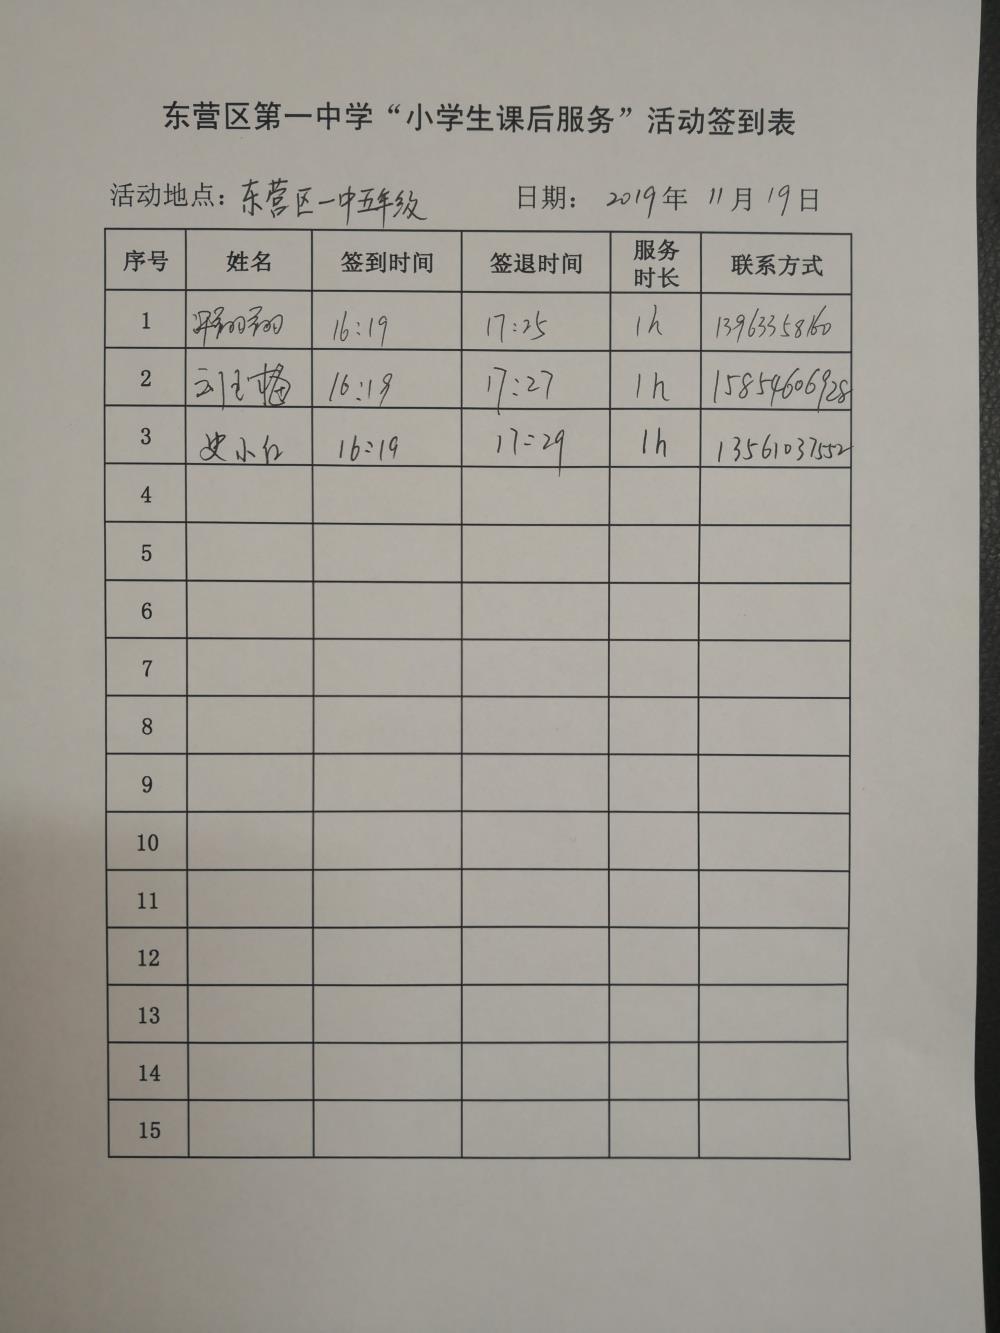 东营区第一中学“小学生课后服务”活动签到表
活动地点：东营区一中五年级 日期： 2019年 11月 19日
序号 姓名 签到时间 签退时间 服务时长 联系方式
1 翔翔 16:19 17:25 1h 13963358160
2 刘 16:19 17:27 1h 15854606928
3 史小红 16:19 17:29 1h 13561037552
4
5
6
7
8
9
10
11
12
13
14
15